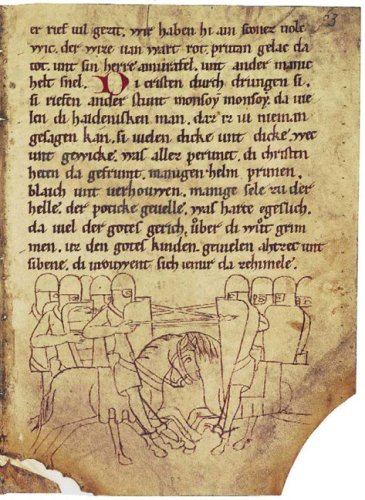 er rief uil gerit. wir haben hi ain sconer uolc
wic. der wize uan wart rot. prutan gelac da
tot. unt sin herre amurafel. unt ander manic
helt snel. Di cristen durch drungen si.
si riefen ander stunt monsoy monsoy. da uie
len di haidenisken man. daz iz iu nieman
gesagen kan. si uielen dicke unt dicke. wec
unt gewicke. was allez perunet. di christen
heten da gefrumt. manigen helm prunen.
blaich unt uerhouwen. manige sele zu der
helle. der poticke geuelle. was harte egeslich.
da wiel der gotes gerich. über di wůt grim
men. uz den gotes kinden. geuielen ahzec unt
sibene. di urowent sich iemir da ze himele.